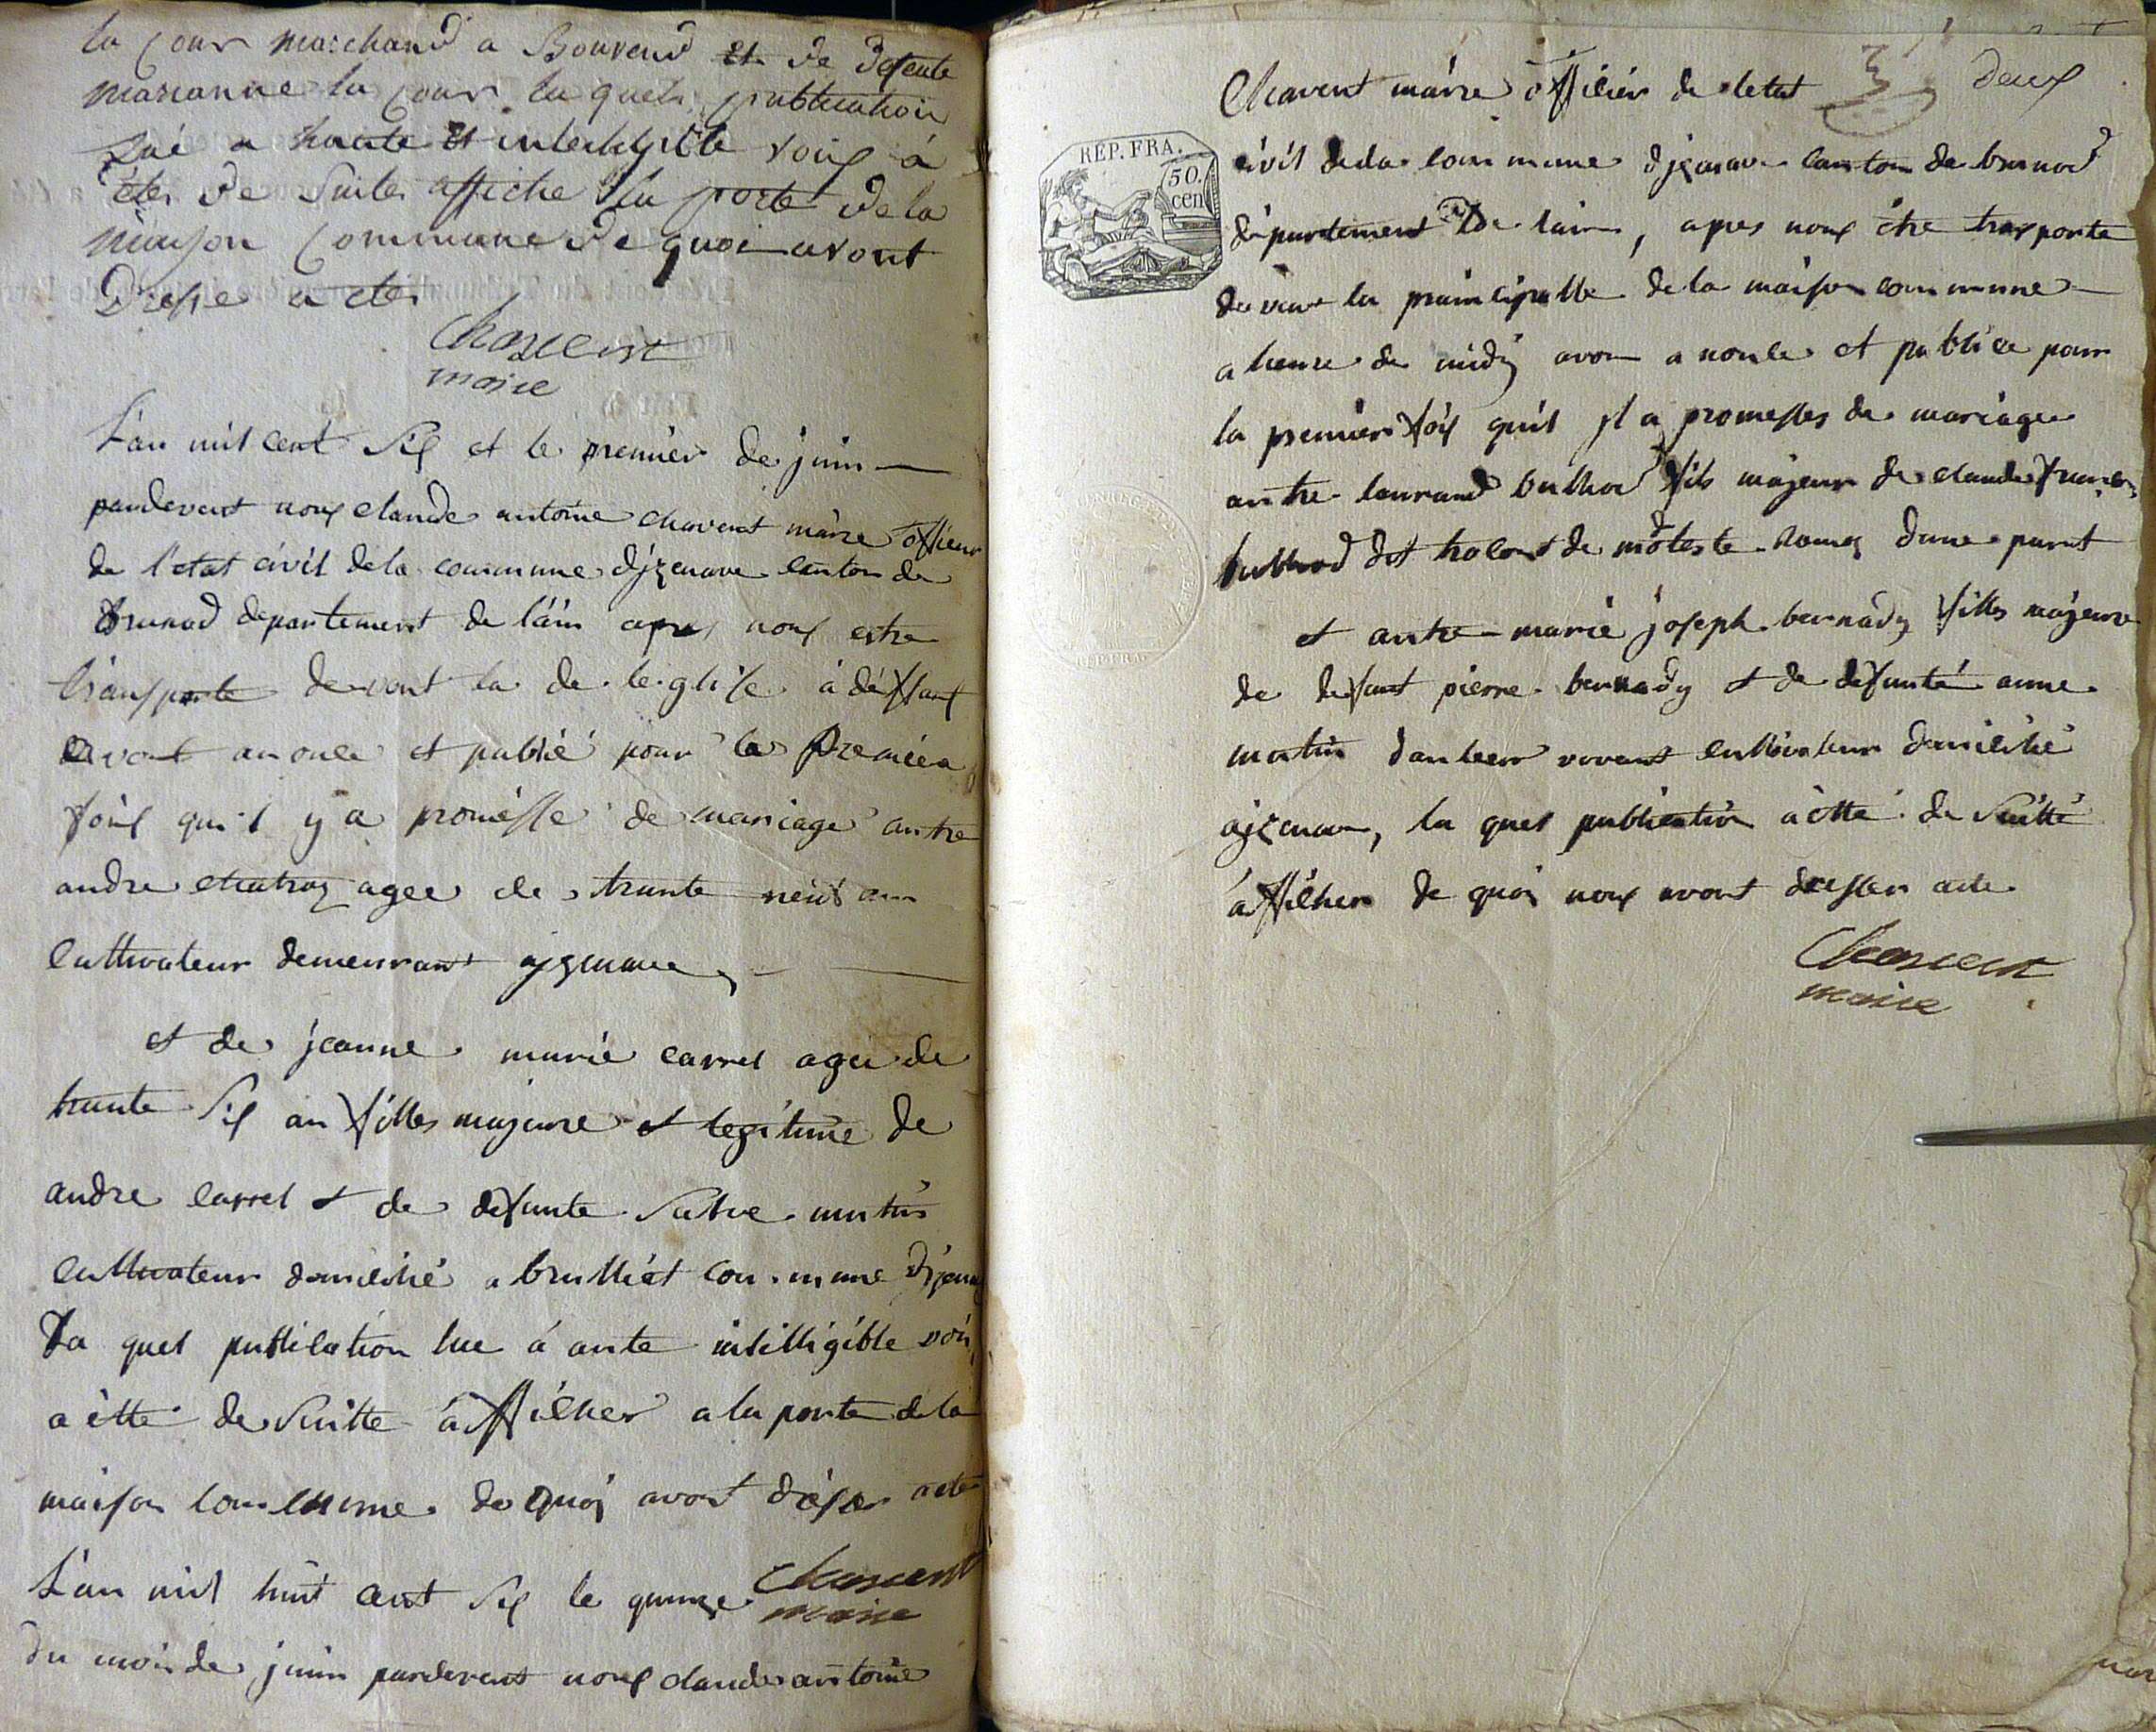 la Cour marchand a Bouvend et de defente
marianne la Cour la quele publication
Lue a haute et inteligible voix à
été de suite affiche a la porte de la
maison Commune de quoi avont
Dresse acte
Chavent
maire
L'an mil cent six et le premier de juin
pardevant nous claude antoine chavent maire officier
de l'etat civil de la commune djzenave canton de
brenod departement de l'ain apres nous estre
transporte devant la de leglise à deffant
avont anonce et publié pour la Premiere
fois qu'il y a promesse de mariage antre
andre chatray agee de trante neuf an
cultivateur demeurant ajzenave
et de jeanne marie carrel agee de
trante six an filles majeure et legitime de
andre carrel et de defunte martin
cultivateur domicilié a brulliat commune djzenave
La quel publication lue á aute intilligible voix
a étté de suitte afficher a la porte de la
maison commune de quoi avont dréser acte
Chavent
maire
L'an mil huit cent six le quinze
du mois de juin pardevant nous claude antoine
deux
Chavent maire officier de letat
REP. FRA.
50.
cen
civil de la commune djzenave canton de brenod
département De lain, apres nous étre transporte
devant la principalle de la maison commune
a heure de midy avon anonce et publiee pour
la premier fois quil yl a promesses de mariage
antre laurand bulliod fils majeur de claude francois
bulliod dit de dune part
et antre marie joseph bernády filles majeure
de defunt pierre bernady et de defunté anne
martin vivant cultivateur domicilié
ajzenave, la quel publication a étté de suitte
afficher de quoi nous avont dresser acte
Chavent
maire